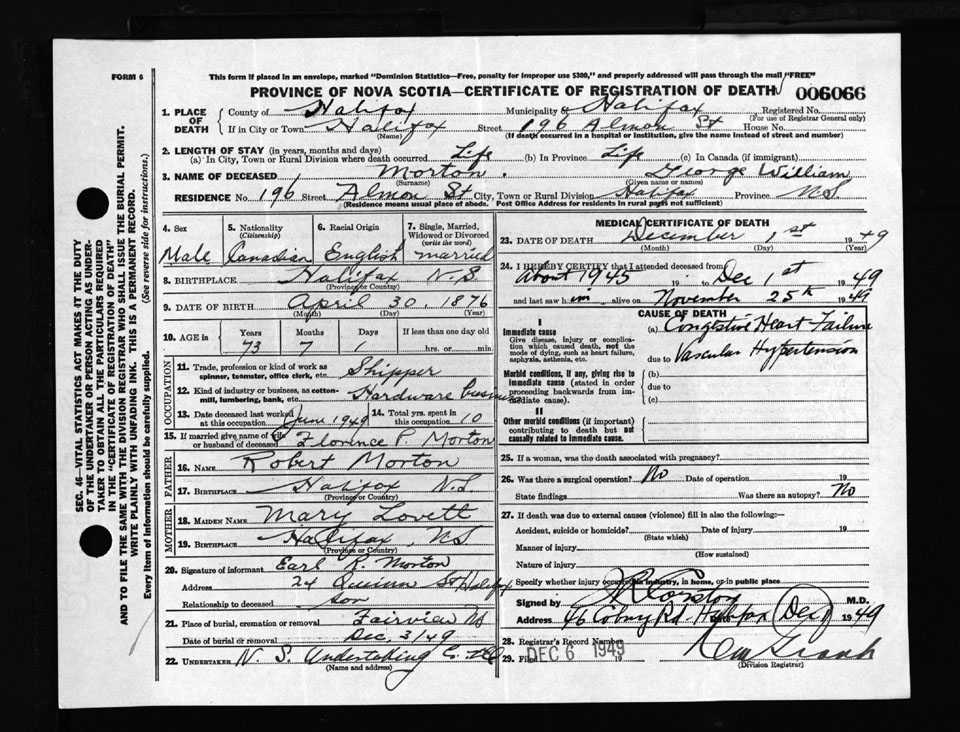 FORM 6
This form if placed in an envelope, marked "Dominion Statistics—Free, penalty for improper use $300," and properly addressed will pass through the mail "FREE"
PROVINCE OF NOVA SCOTIA—CERTIFICATE OF REGISTRATION OF DEATH 006066
1. PLACE OF DEATH
County of Halifax Municipality Halifax Registered No.
(For use of Registrar General only)
If in City or Town Halifax Street 196 Almon St House No.
(Name) (If death occurred in a hospital or institution, give the name instead of street and number)
2. LENGTH OF STAY (in years, months and days)
(a) In City, Town or Rural Division where death occurred Life (b) In Province Life (c) In Canada (if immigrant)
3. NAME OF DECEASED Morton George William
(Surname) (Given name or names)
RESIDENCE No. 196 Street Almon St City, Town or Rural Division Halifax Province N.S
(Residence means usual place of abode. Post Office Address for residents in rural parts not sufficient)
4. Sex 5. Nationality (Citizenship) 6. Racial Origin 7. Single, Married, Widowed or Divorced (write the word)
Male Canadian English married
8. BIRTHPLACE Halifax N.S
(Province or Country)
9. DATE OF BIRTH April 30. 1876
(Month) (Day) (Year)
10. AGE in Years Months Days If less than one day old
73 7 1 hrs. or min.
OCCUPATION
11. Trade, profession or kind of work as spinner, teamster, office clerk, etc. Shipper
12. Kind of industry or business, as cotton-mill, lumbering, bank, etc. Hardware business
13. Date deceased last worked at this occupation June 1949 14. Total yrs. spent in this occupation 10
15. If married give name of wife or husband of deceased Florence P. Morton
FATHER
16. NAME Robert Morton
17. BIRTHPLACE Halifax N.S.
(Province or Country)
MOTHER
18. MAIDEN NAME Mary Lovett
19. BIRTHPLACE Halifax, N.S.
(Province or Country)
20. Signature of informant Earl R. Morton
Address 24 Quinn St Halifax
Relationship to deceased son
21. Place of burial, cremation or removal Fairview NS
Date of burial or removal Dec. 3/49
22. UNDERTAKER N. S. Undertaking Co.
MEDICAL CERTIFICATE OF DEATH
23. DATE OF DEATH December 1st 1949
(Month) (Day) (Year)
24. I HEREBY CERTIFY that I attended deceased from
About 1945 19 to Dec 1st 1949
and last saw him alive on November 25th 1949
CAUSE OF DEATH
I
Immediate cause (a) Congestive Heart Failure
Give disease, injury or complication which caused death, not the mode of dying, such as heart failure, asphyxia, asthenia, etc.
due to Vascular Hypertension
Morbid conditions, if any, giving rise to immediate cause (stated in order proceeding backwards from immediate cause).
(b)
due to
(c)
II
Other morbid conditions (if important) contributing to death but not causally related to immediate cause.
25. If a woman, was the death associated with pregnancy?
26. Was there a surgical operation? No Date of operation 19
State findings Was there an autopsy? No
27. If death was due to external causes (violence) fill in also the following:—
Accident, suicide or homicide? Date of injury 19
(State which)
Manner of injury
(How sustained)
Nature of injury
Specify whether injury occurred in industry, in home, or in public place
Signed by M.D.
Address Rd. Halifax Date Dec 1 1949
28. Registrar's Record Number
29. Filed DEC 6 1949 19
(Division Registrar)
SEC. 46—VITAL STATISTICS ACT MAKES IT THE DUTY
OF THE UNDERTAKER OR PERSON ACTING AS UNDER-
TAKER TO OBTAIN ALL THE PARTICULARS REQUIRED
IN THE "CERTIFICATE OF REGISTRATION OF DEATH"
AND TO FILE THE SAME WITH THE DIVISION REGISTRAR WHO SHALL ISSUE THE BURIAL PERMIT.
WRITE PLAINLY WITH UNFADING INK. THIS IS A PERMANENT RECORD.
Every item of information should be carefully supplied. (See reverse side for instructions.)